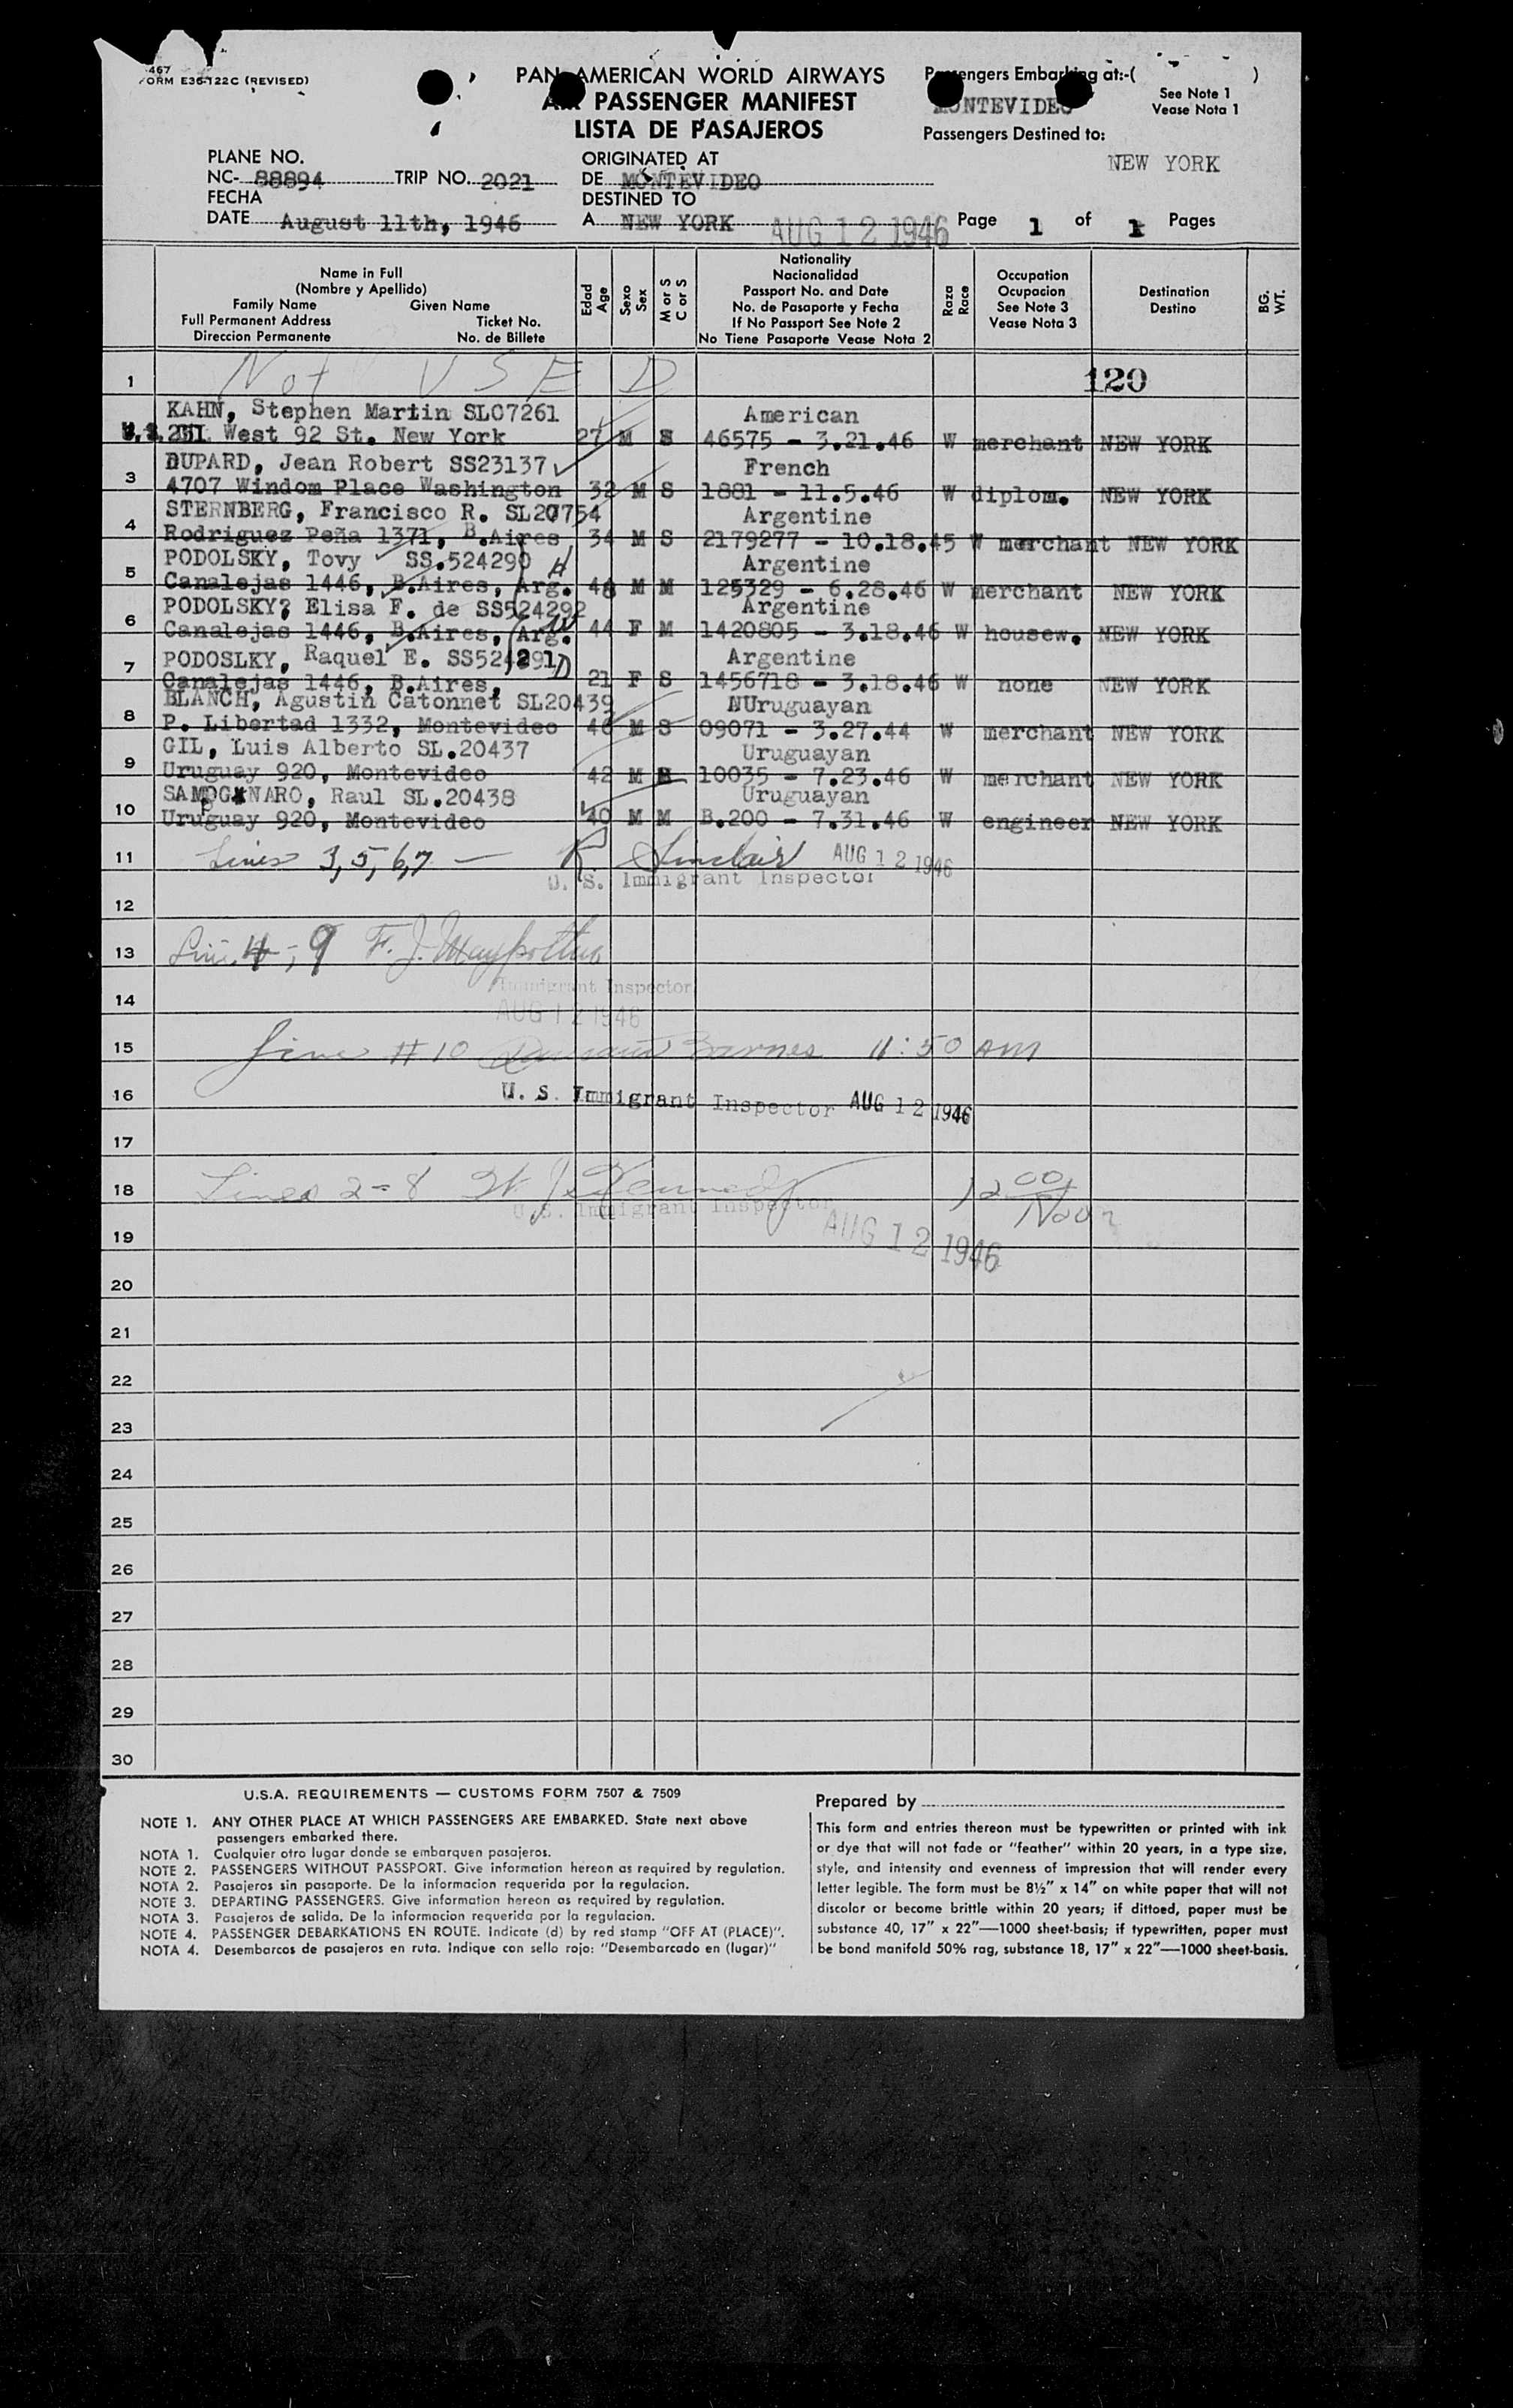 467
FORM E36-122C (REVISED)
PAN AMERICAN WORLD AIRWAYS
AIR PASSENGER MANIFEST
LISTA DE PASAJEROS
Passengers Embarking at:-( )
See Note 1
Vease Nota 1
MONTEVIDEO
Passengers Destined to:
NEW YORK
PLANE NO.
NC- 88894 TRIP NO. 2021
FECHA
DATE August 11th, 1946
ORIGINATED AT
DE MONTEVIDEO
DESTINED TO
A NEW YORK
AUG 12 1946
Page 1 of 1 Pages
Name in Full
(Nombre y Apellido)
Family Name Given Name
Full Permanent Address Ticket No.
Direccion Permanente No. de Billete
Edad
Age
Sexo
Sex
M or S
C or S
Nationality
Nacionalidad
Passport No. and Date
No. de Pasaporte y Fecha
If No Passport See Note 2
No Tiene Pasaporte Vease Nota 2
Raza
Race
Occupation
Ocupacion
See Note 3
Vease Nota 3
Destination
Destino
BG.
WT.
1 Not USED 120
KAHN, Stephen Martin SL07261 American
West 92 St. New York 27 M S 46575 - 3.21.46 W merchant NEW YORK
DUPARD, Jean Robert SS23137 French
3 4707 Windom Place Washington 32 M S 1881 - 11.5.46 W diplom. NEW YORK
STERNBERG, Francisco R. SL20754 Argentine
4 Rodriguez Peña 1371, B.Aires 34 M S 2179277 - 10.18.45 W merchant NEW YORK
PODOLSKY, Tovy SS.524290 H Argentine
5 Canalejas 1446, B.Aires, Arg. 48 M M 125329 - 6.28.46 W merchant NEW YORK
PODOLSKY? Elisa F. de SS524292 Argentine
6 Canalejas 1446, B.Aires, Arg. W 44 F M 1420805 - 3.18.46 W housew. NEW YORK
PODOSLKY, Raquel E. SS524291 D Argentine
7 Canalejas 1446, B.Aires, 21 F S 1456718 - 3.18.46 W none NEW YORK
BLANCH, Agustin Catonnet SL20439 NUruguayan
8 P. Libertad 1332, Montevideo 46 M S 09071 - 3.27.44 W merchant NEW YORK
GIL, Luis Alberto SL.20437 Uruguayan
9 Uruguay 920, Montevideo 42 M 10035 - 7.23.46 W merchant NEW YORK
Raul SL.20438 Uruguayan
10 Uruguay 920, Montevideo 40 M M B.200 - 7.31.46 W engineer NEW YORK
11 Lines 3,5,6,7 — R Sinclair AUG 12 1946
U. S. Immigrant Inspector
12
13 Line 4-9 F. J.
Immigrant Inspector
14
AUG 12 1946
15 Line #10 Barnes 11:50 AM
16 U. S. Immigrant Inspector AUG 12 1946
17
18 Lines 2-8 J. Kennedy 12 00 Noon
U.S. Immigrant Inspector
19 AUG 12 1946
20
21
22
23
24
25
26
27
28
29
30
U.S.A. REQUIREMENTS — CUSTOMS FORM 7507 & 7509
NOTE 1. ANY OTHER PLACE AT WHICH PASSENGERS ARE EMBARKED. State next above
passengers embarked there.
NOTA 1. Cualquier otro lugar donde se embarquen pasajeros.
NOTE 2. PASSENGERS WITHOUT PASSPORT. Give information hereon as required by regulation.
NOTA 2. Pasajeros sin pasaporte. De la informacion requerida por la regulacion.
NOTE 3. DEPARTING PASSENGERS. Give information hereon as required by regulation.
NOTA 3. Pasajeros de salida. De la informacion requerida por la regulacion.
NOTE 4. PASSENGER DEBARKATIONS EN ROUTE. Indicate (d) by red stamp "OFF AT (PLACE)".
NOTA 4. Desembarcos de pasajeros en ruta. Indique con sello rojo: "Desembarcado en (lugar)"
Prepared by
This form and entries thereon must be typewritten or printed with ink
or dye that will not fade or "feather" within 20 years, in a type size,
style, and intensity and evenness of impression that will render every
letter legible. The form must be 8½" x 14" on white paper that will not
discolor or become brittle within 20 years; if dittoed, paper must be
substance 40, 17" x 22"—1000 sheet-basis; if typewritten, paper must
be bond manifold 50% rag, substance 18, 17" x 22"—1000 sheet-basis.